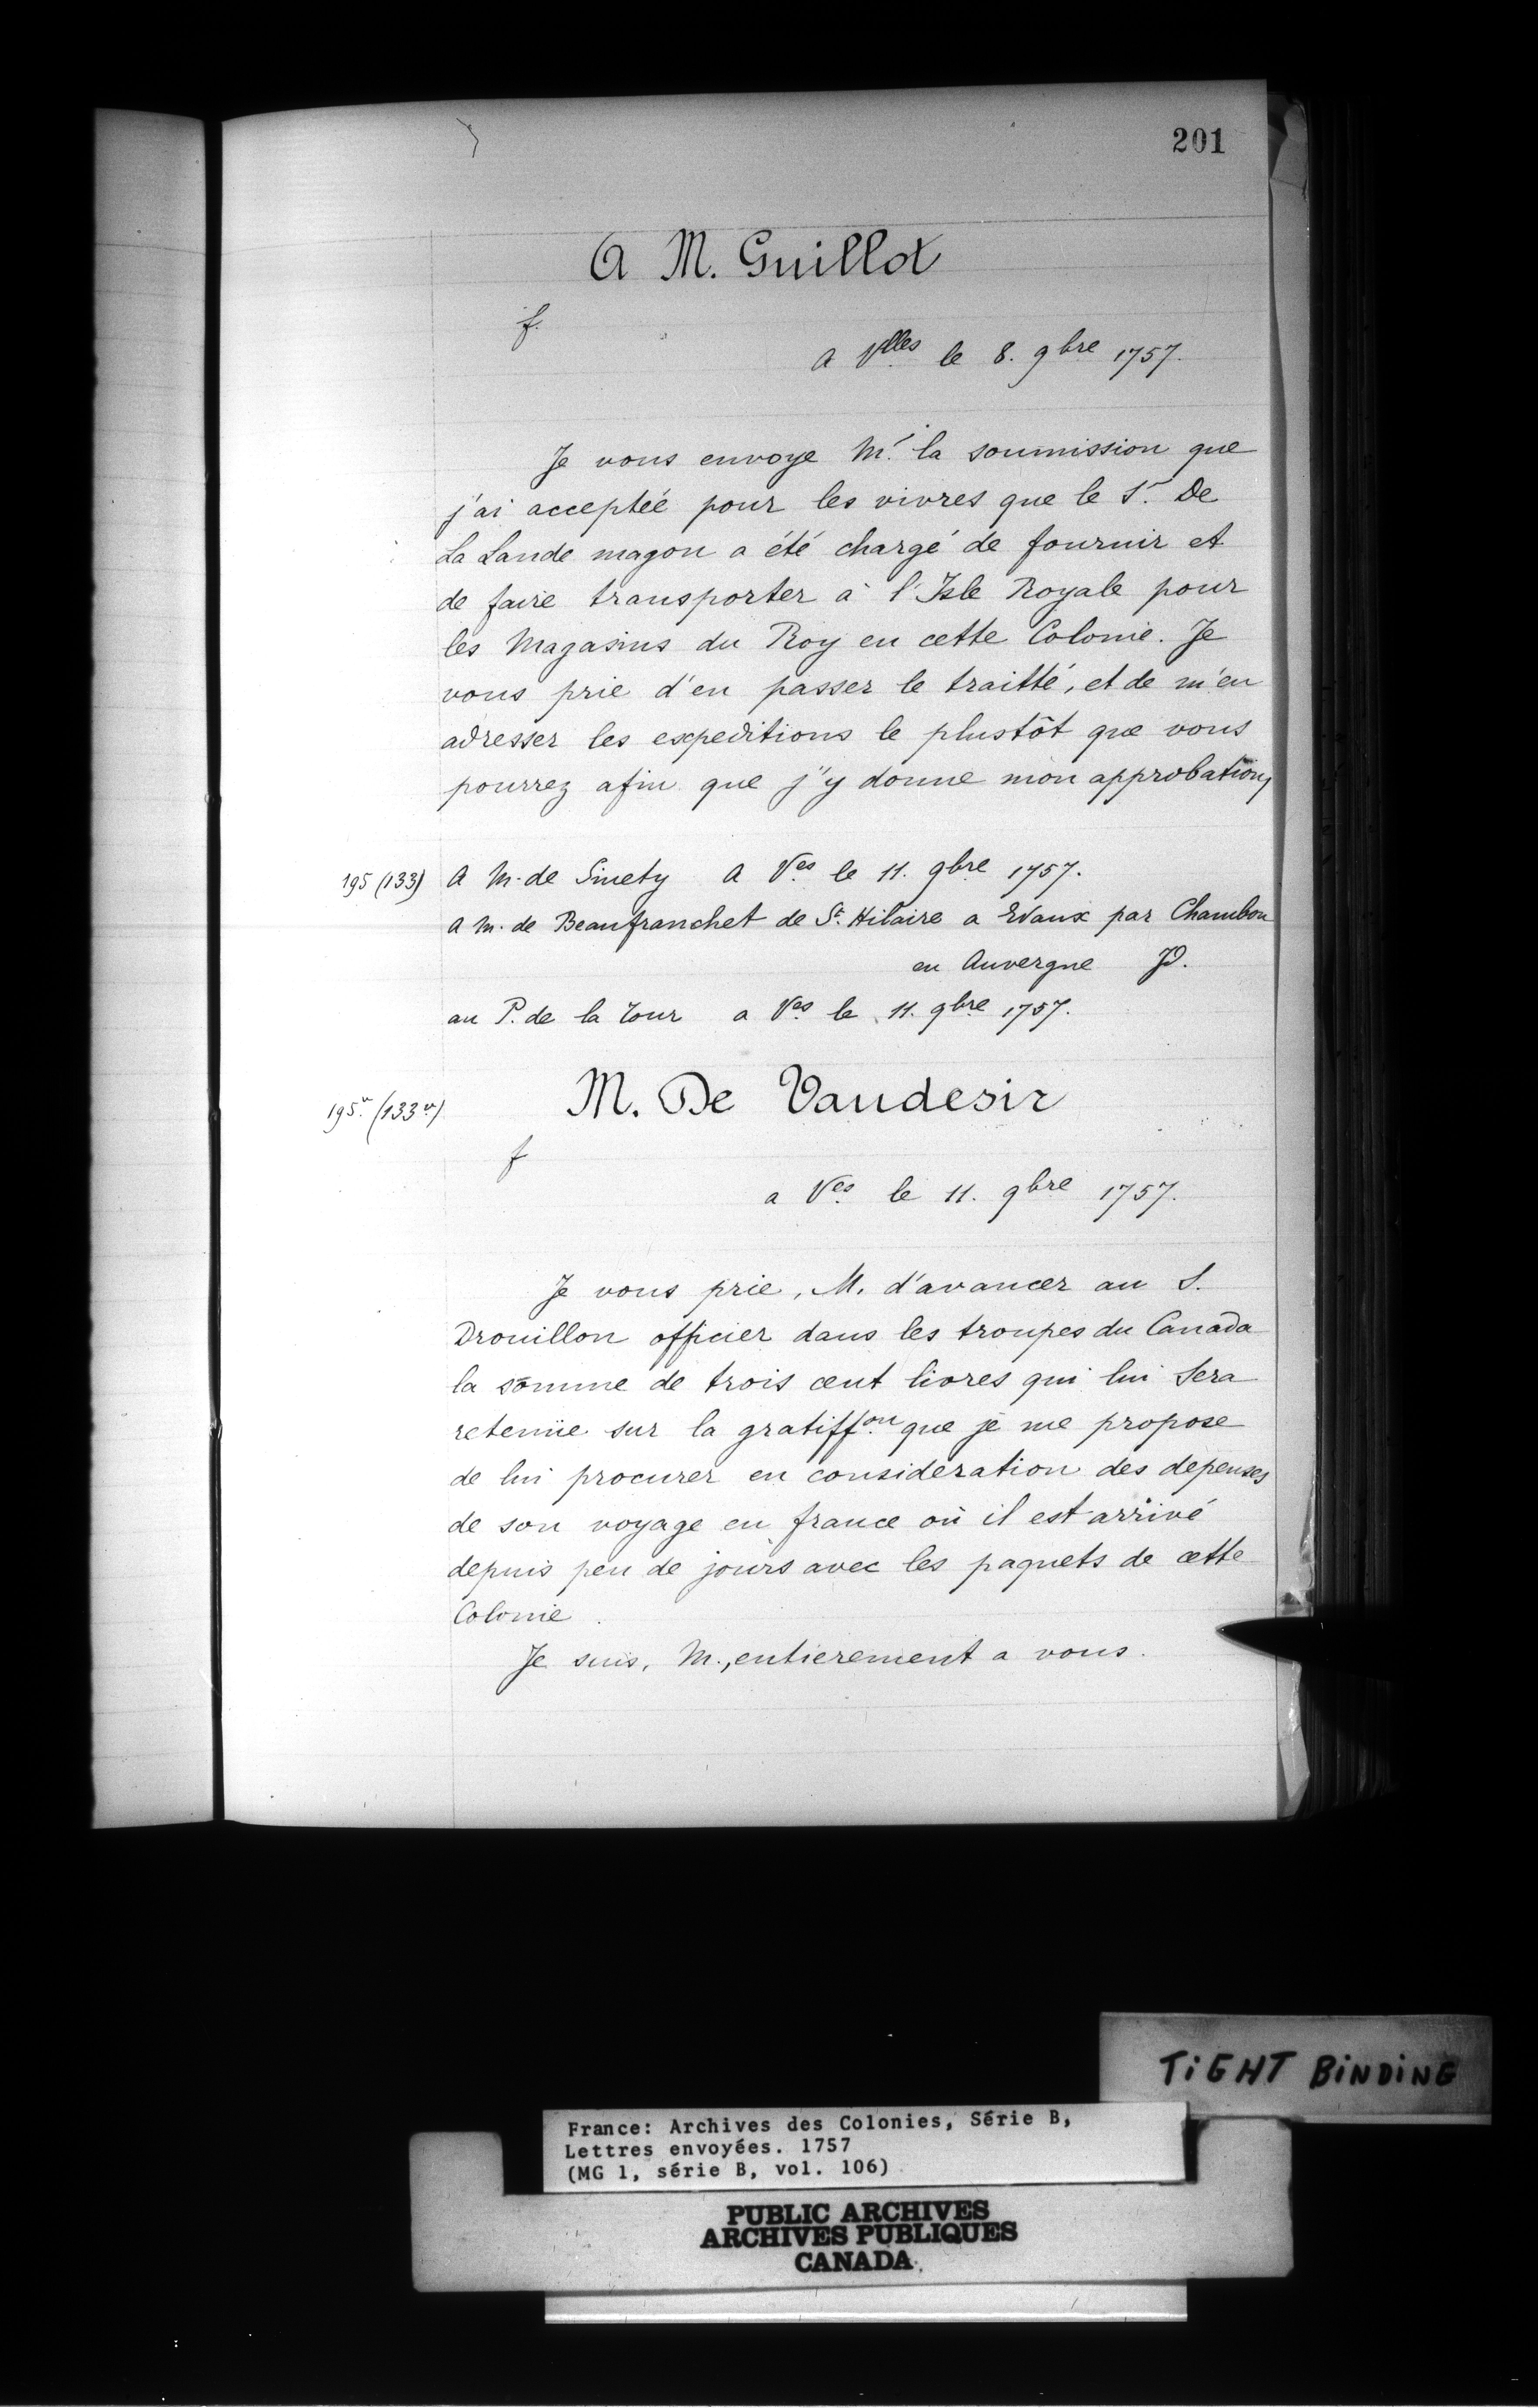 201
A M. Guillot
f.
A V^lles le 8. 9bre 1757.
Je vous envoye M.^r la soumission que
j'ai acceptée pour les vivres que le S.^r De
La Lande magon a été chargé de fournir et
de faire transporter à l'Isle Royale pour
les Magasins du Roy en cette Colonie. Je
vous prie d'en passer le traitté, et de m'en
adresser les expeditions le plustôt que vous
pourrez afin que j'y donne mon approbation,
195 (133) A M. de Sinety A V^es le 11. 9bre 1757.
A m. de Beaufranchet de S^t. Hilaire a Evaux par Chambon
en Auvergne JD.
au P. de la Tour a V^es le 11. 9bre 1757.
195.^v (133 v) M. De Vaudesir
f
a V^es le 11. 9bre 1757.
Je vous prie, M. d'avancer au S.
Drouillon officier dans les troupes du Canada
la somme de trois cent livres qui lui Sera
retenüe sur la gratiff^on. que je me propose
de lui procurer en consideration des depenses
de son voyage en france où il est arrivé
depuis peu de jours avec les paquets de cette
Colonie.
Je suis, M., entierement a vous.
TIGHT BINDING
France: Archives des Colonies, Série B,
Lettres envoyées. 1757
(MG 1, série B, vol. 106)
PUBLIC ARCHIVES
ARCHIVES PUBLIQUES
CANADA